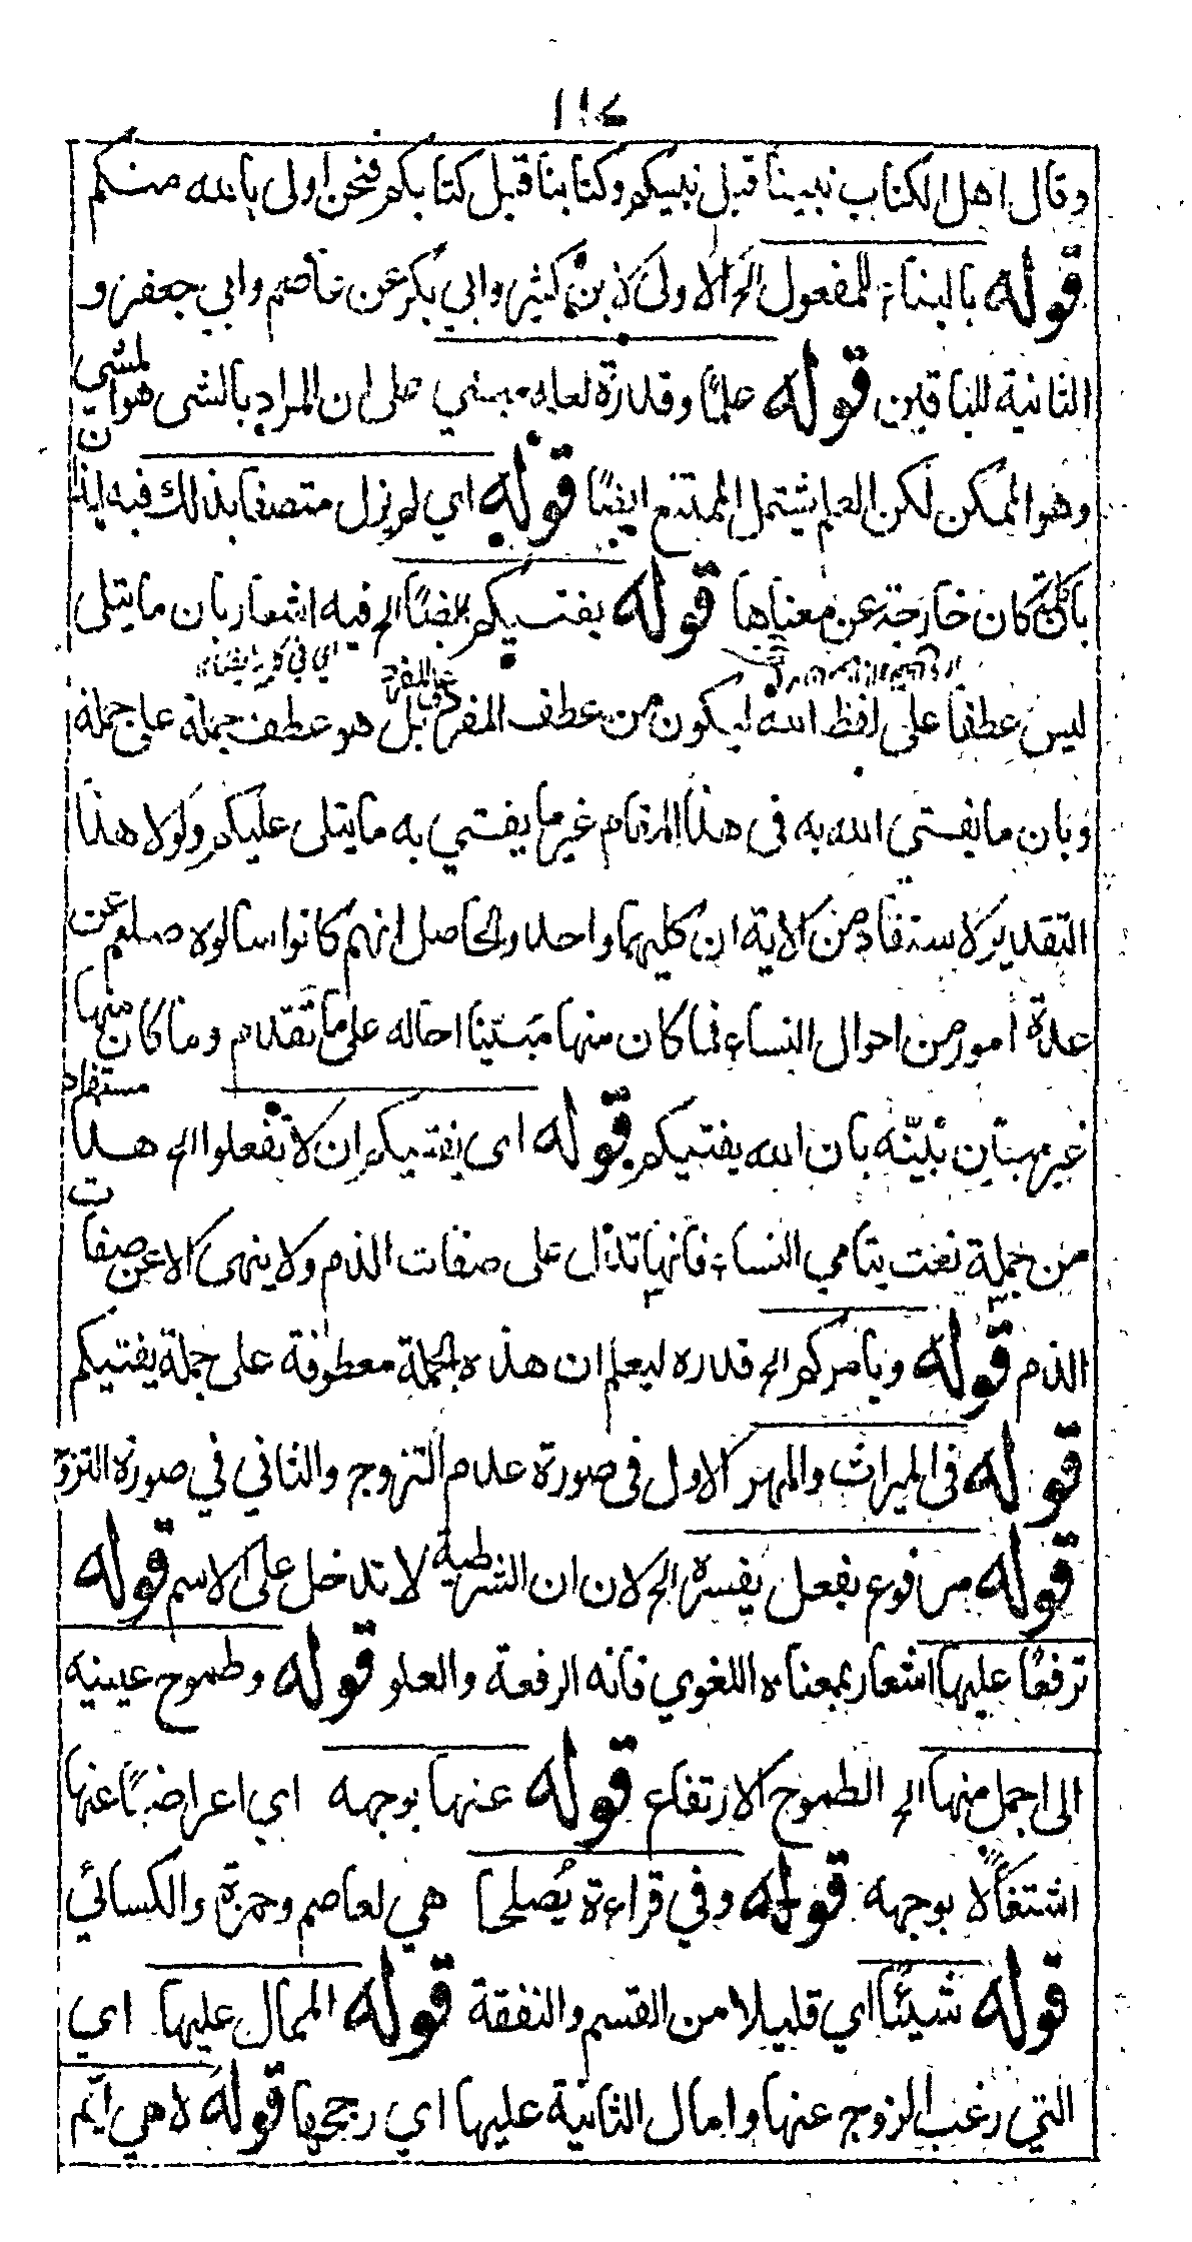 وقال اهل الكتاب نبينا قبل نبيكم وكتابنا قبل كتابكم فنحن اولى بالله منكم
قوله بالبناء للمفعول الخ الاولى لابن كثير وابي بكر عن عاصم وابي جعفر و
الثانية للباقين قوله علما وقدرة لعله مبني على ان المراد بالشى هو المشي
وهو الممكن لكن العلم يشتمل الممتنع ايضًا قوله اي لم يزل متصفا بذلك فيه ايذان
بان كان خارجة عن معناها قوله يفتيكم ايضًا الخ فيه اشعار بان ما يتلى
ليس عطفا على لفظ الله ليكون من عطف المفرد على المفرد بل هو عطف جملة على جملة
وبان ما يفتى الله به فى هذا المقام غير ما يفتي به ما يتلى عليكم ولولا هذا
التقدير لاستفاد من الاية ان كليهما واحد والحاصل انهم كانوا سالوه صلعم عن
عدة امور من احوال النساء فما كان منها مبيّنا احاله على ما تقدم وما كان منها
غير مبين بيّنه بان الله يفتيكم قوله اى يفتيكم ان لا تفعلوا الخ هذا مستفاد
من جملة نعت يتامي النساء فانها تدل على صفات الذم ولا ينهى الا عن صفات
الذم قوله ويامركم الخ قدره ليعلم ان هذه الجملة معطوفة على جملة يفتيكم
قوله فى الميراث والمهر الاول فى صورة عدم التزوج والثاني في صورة التزوج
قوله مرفوع بفعل يفسره الخ لان ان الشرطية لا تدخل على الاسم قوله
ترفعًا عليها اشعار بمعناه اللغوي فانه الرفعة والعلو قوله وطموح عينيه
الى اجمل منها الخ الطموح الارتفاع قوله عنها بوجهه اي اعراضًا عنها
اشتغالا بوجهه قوله وفي قراءة يُصلحا هي لعاصم وحمزة والكسائي
قوله شيئًا اي قليلا من القسم والنفقة قوله الممال عليها اي
التي رغب الزوج عنها وامال الثانية عليها اي رجحها قوله لا هي ايّم